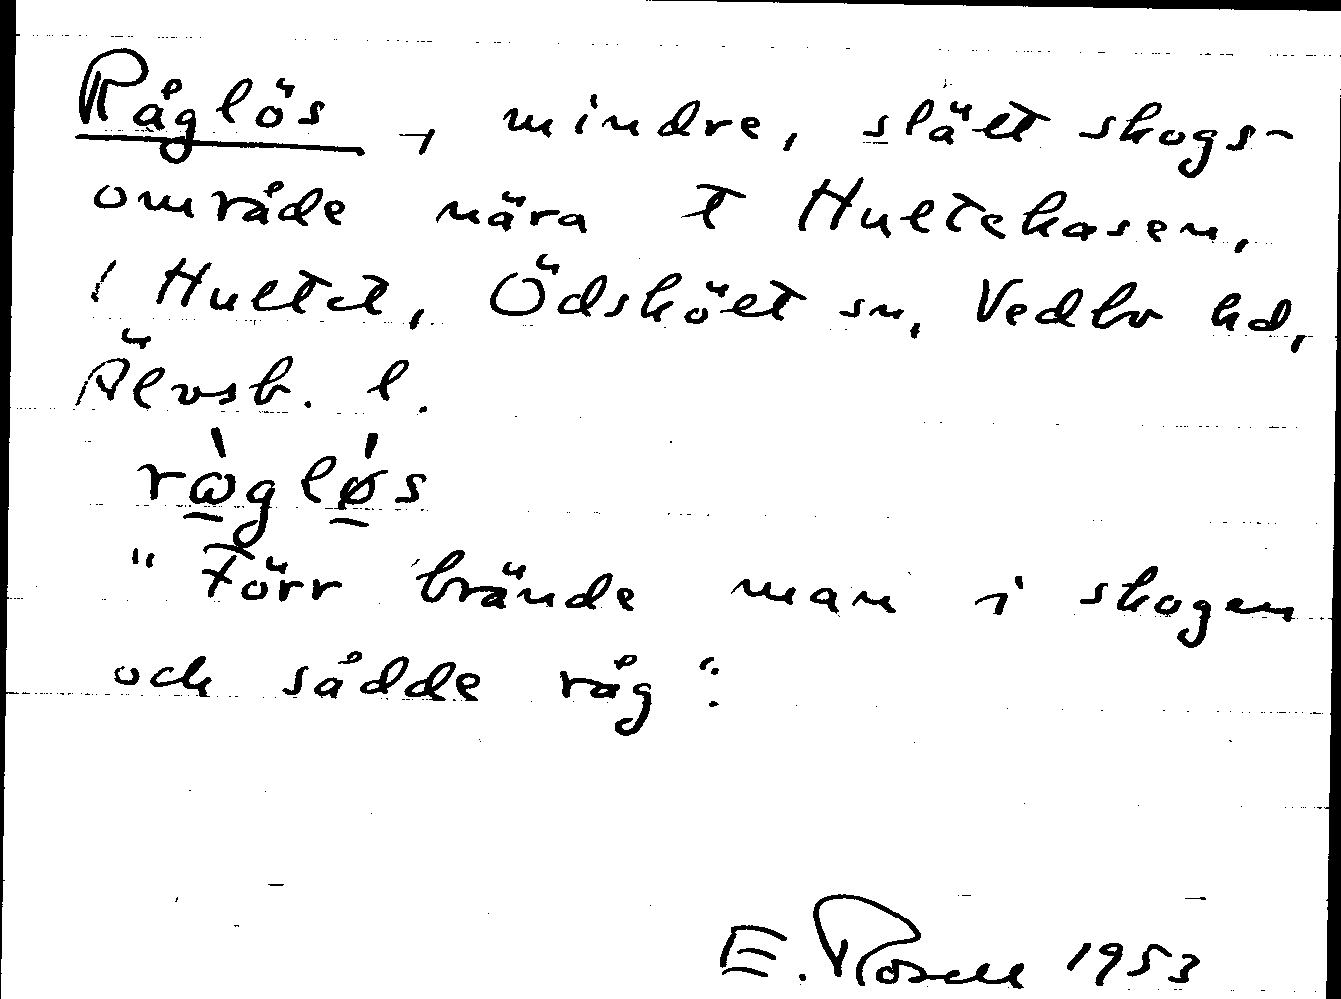 Råglös, mindre, slätt skogs-
område nära t Hultekasen,
1 Hultet, Ödskölt sn, Vedbo hd,
Älvsb. l.
rὼglǿ̱s
"Förr brände man i skogen
och sådde råg".
E. Rosell 1953